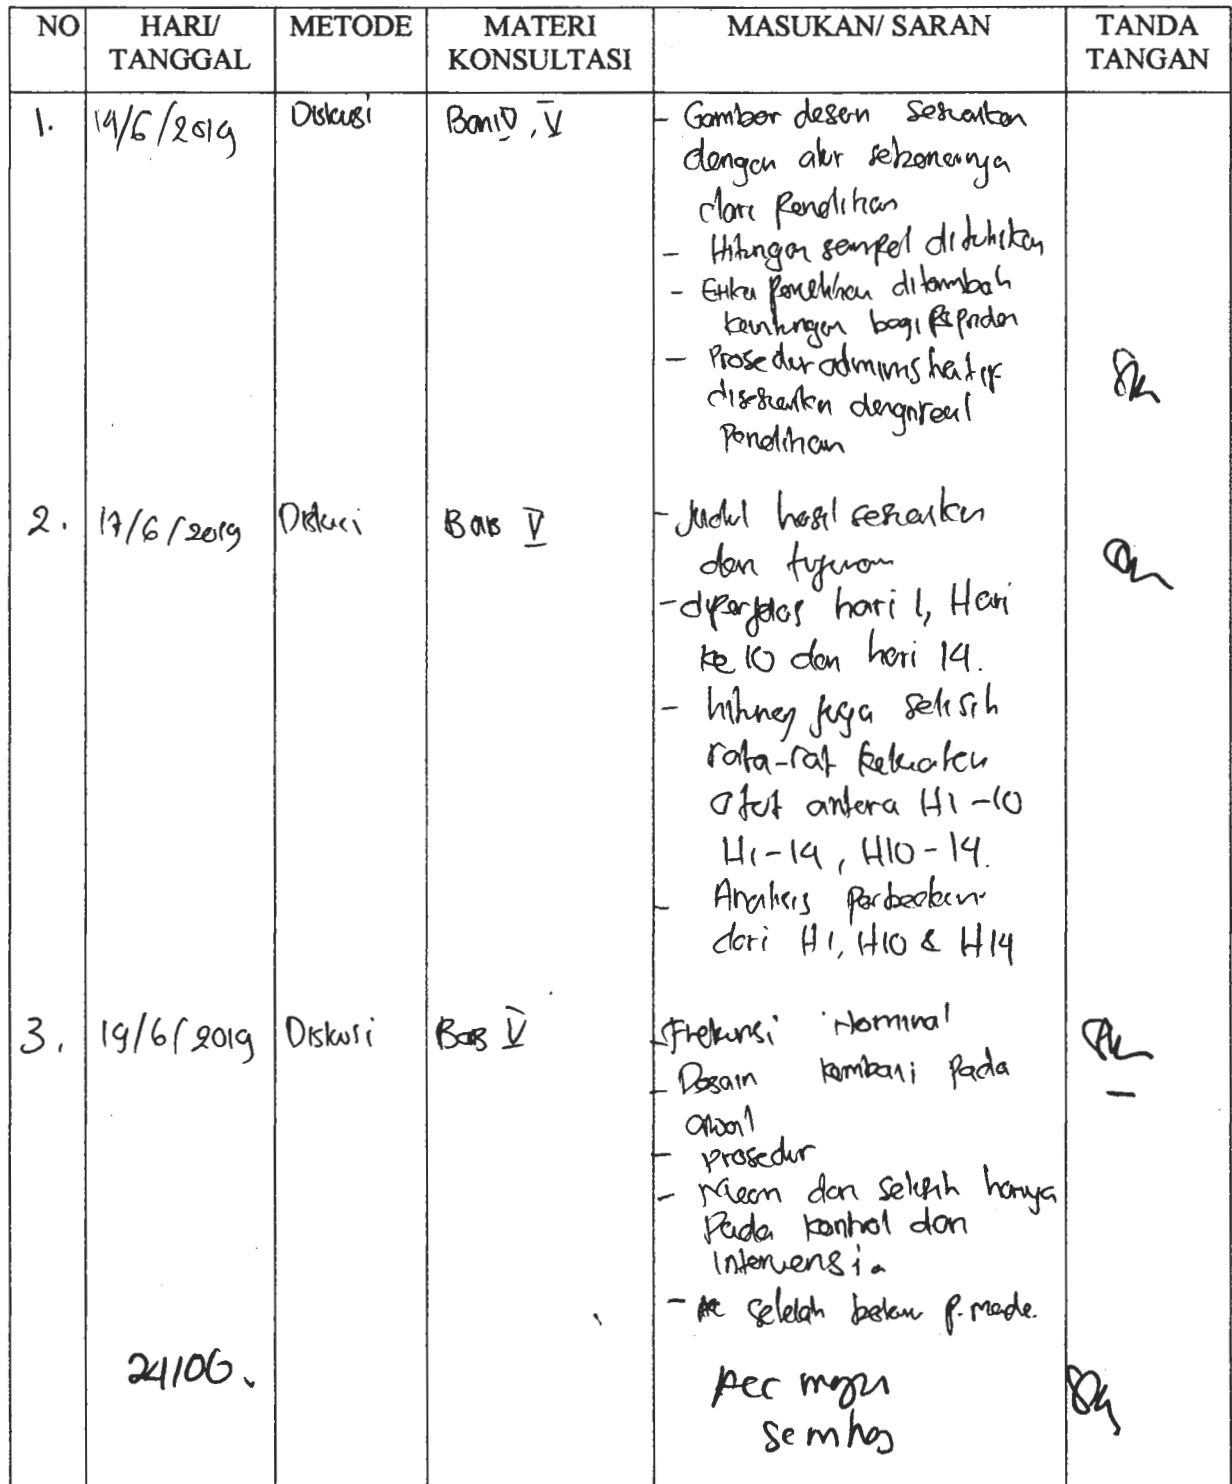 NO HARI/ TANGGAL METODE MATERI KONSULTASI MASUKAN/ SARAN TANDA TANGAN
1. 14/6/2019 Diskusi Bab IV, V - Gambar desain sesuaikan
dengan alur sebenarnya
dari Penelitian
- Hitungan sampel dituliskan
- Etika penelitian ditambah
keuntungan bagi responden
- Prosedur administratif
disesuaikan dengan real
Penelitian
2. 17/6/2019 Diskusi Bab V - Judul hasil sesuaikan
dan tujuan
- diperjelas hari 1, Hari
ke 10 dan hari 14.
- hitung juga selisih
rata-rat kekuatan
otot antara H1-10
H1-14, H10-14.
- Analisis perbedaan
dari H1, H10 & H14
3. 19/6/2019 Diskusi Bab V - Frekuensi Nominal
- Desain kembali pada
awal
- prosedur
- Mean dan selisih hanya
pada kontrol dan
Intervensi.
- setelah p. made.
24/06. Acc maju
semhas